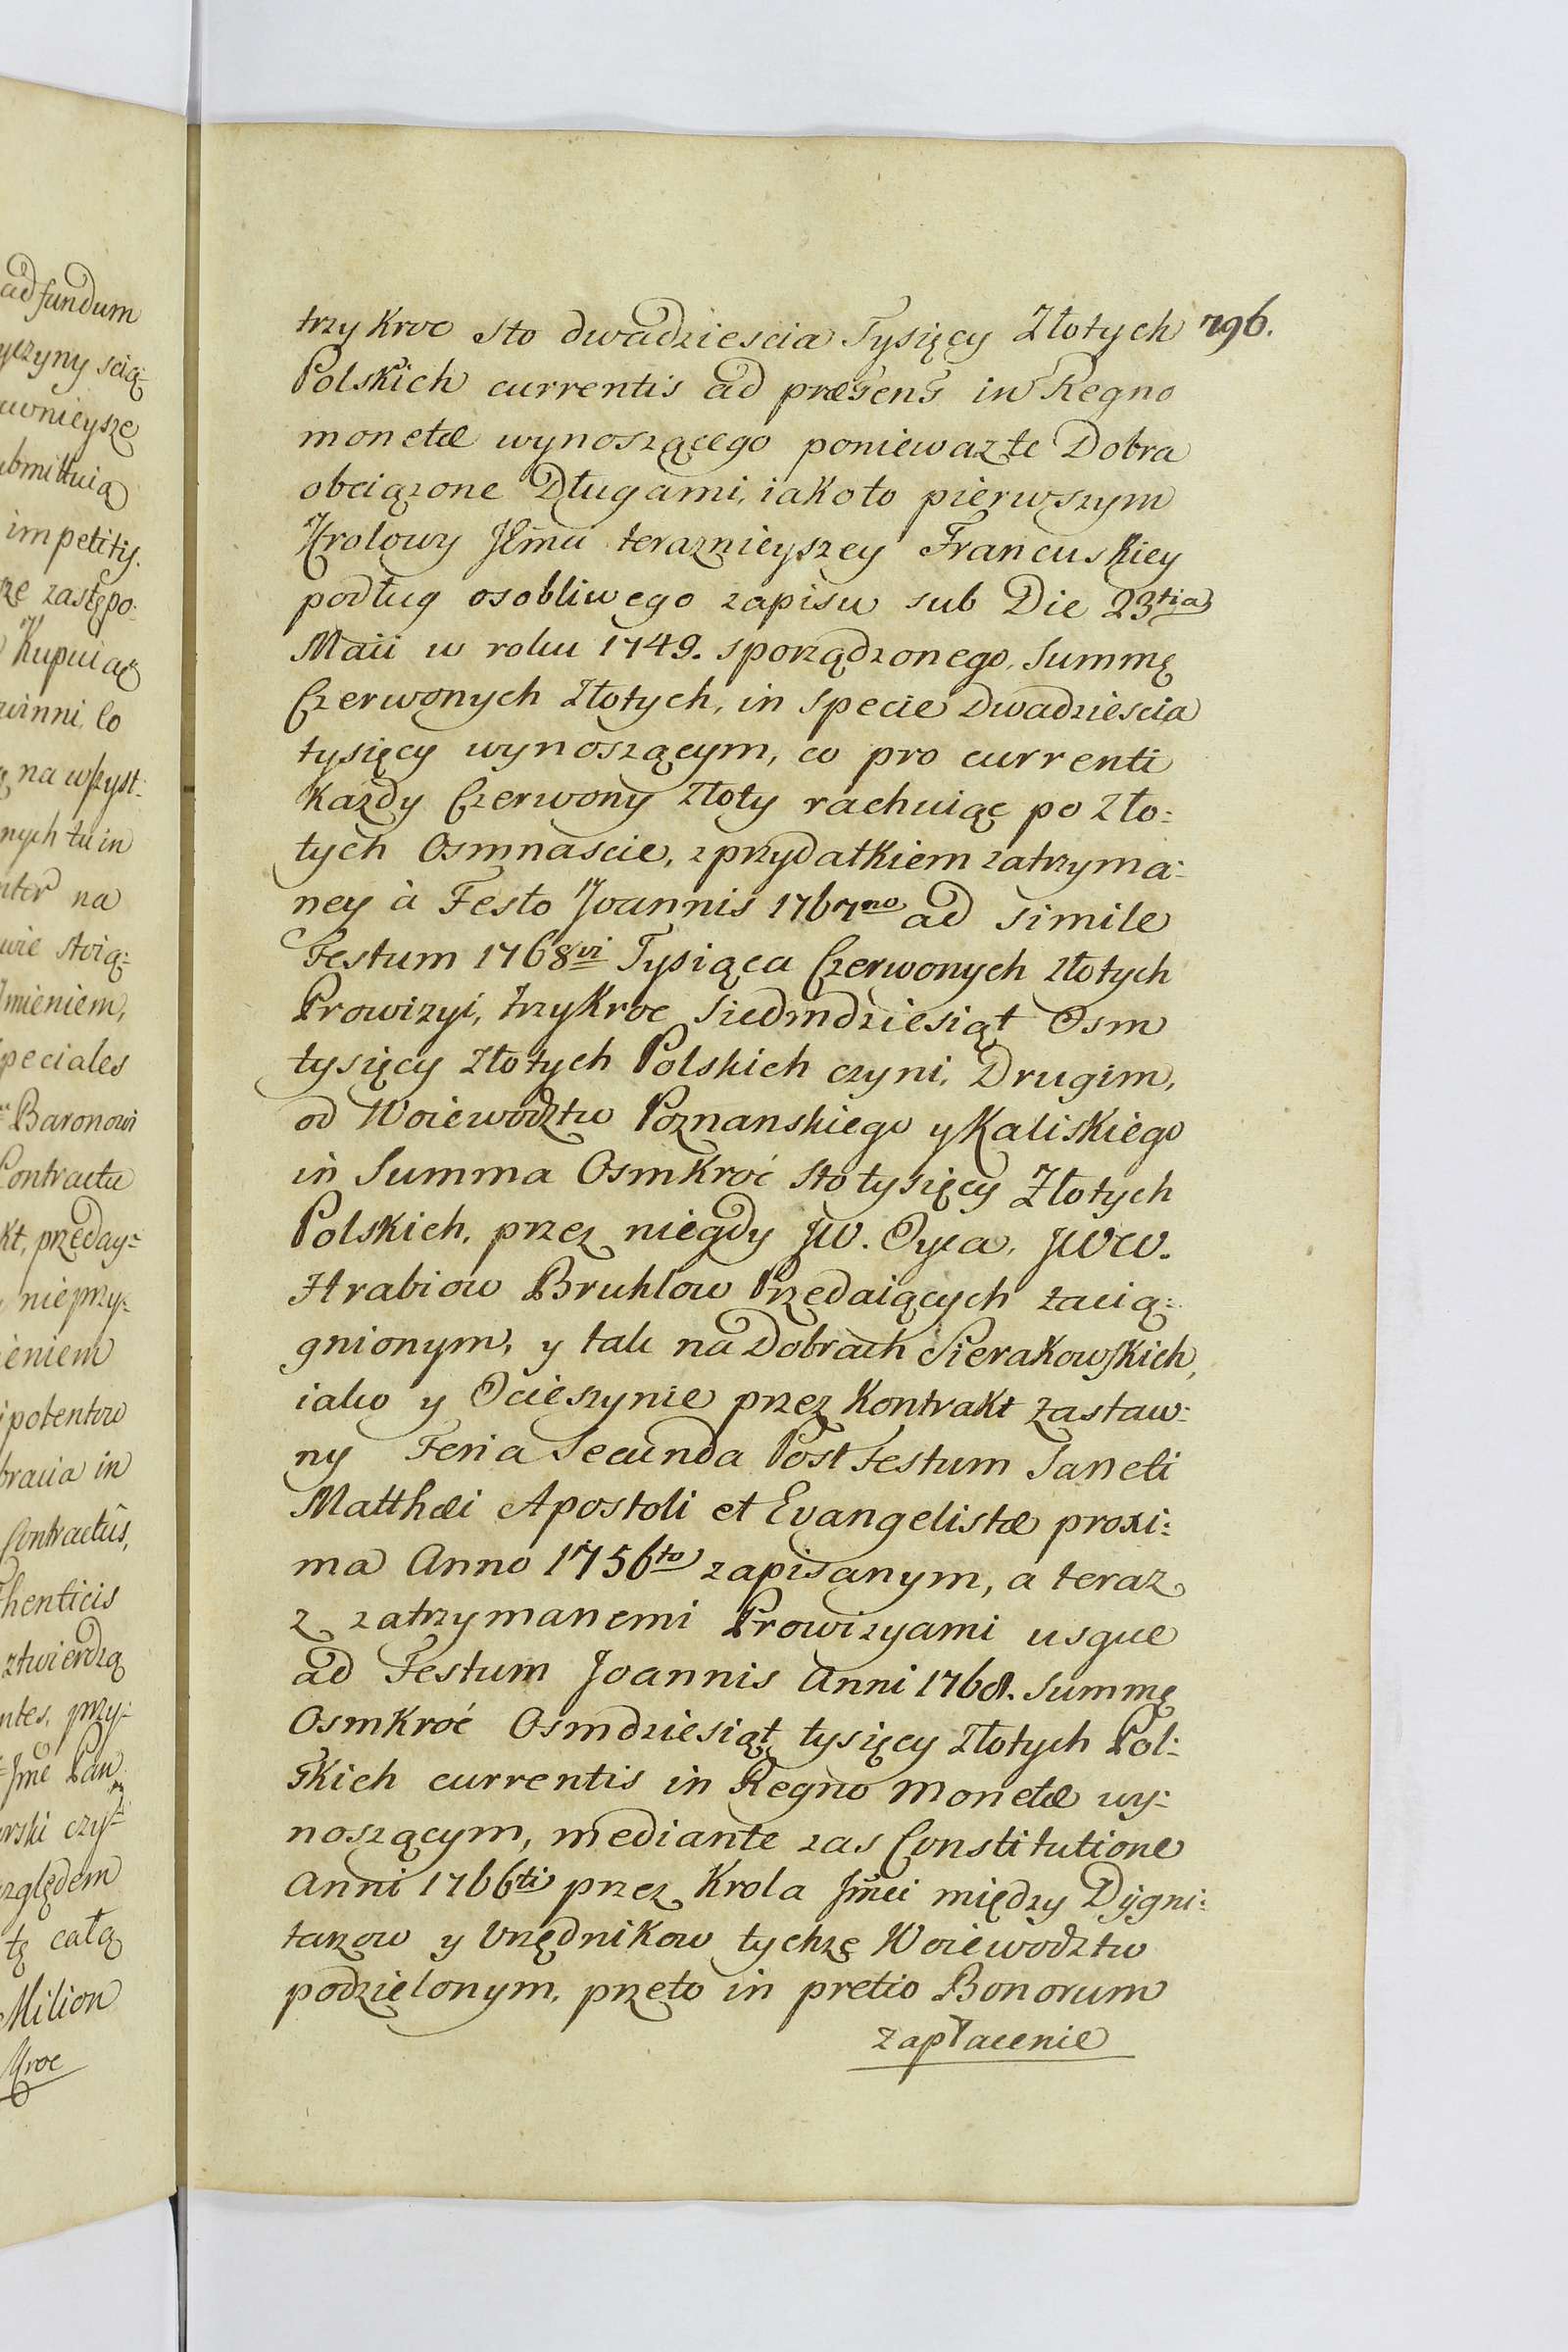 ad fundum
yczyny scią-
uwnieysze
ubmittuią
impetitij.
sze zastępo-
Kupuiąc
winni, co
na wszyst-
nych tu in
nter na
wie stoią-
Imieniem,
speciales
Baronowi
Contractu
kt, przeday-
nieprzy-
ieniem
ipotentow
bracia in
Contractûs,
thenticis
ztwierdzą
ntes, przy-
Jmć Pan
rski czy-
względem
tę całą
Milion
Kroc
trzy Kroc Sto dwadziescia Tysięcy Złotych 796.
Polskich currentis ad præsens in Regno
monetæ wynoszącego poniewaz te Dobra
obciązone Długami, iako to pierwszym
Krolowy Jeĩmci teraznieyszey Francuskiey
podług osobliwego zapisu sub Die 23tia
Maii w roku 1749. sporządzonego, Summę
Czerwonych Złotych, in specie Dwadziescia
tysięcy wynoszącym, co pro currenti
Kazdy Czerwony Złoty rachuiąc po Zło-
tych Osmnascie, z przydatkiem zatrzyma-
ney à Festo Joannis 1767mo ad simile
Festum 1768vi Tysiąca Czerwonych Złotych
Prowizyi, trzyKroc Siedmdziesiąt Osm
tysięcy Złotych Polskich czyni, Drugim,
od Woiewodztw Poznanskiego y Kaliskiego
in Summa OsmKroć Sto tysięcy Złotych
Polskich, przez niegdy JW. Oyca, JWW.
Hrabiow Bruhlow Przedaiących zacią-
gnionym, y tak na Dobrach Sierakowskich,
iako y Ocieszynie przez Kontrakt zastaw-
ny Feria Secunda Post Festum Sancti
Matthæi Apostoli et Evangelistæ proxi-
ma Anno 1756to zapisanym, a teraz
z zatrzymanemi Prowizyami usque
ad Festum Joannis Anni 1768. Summę
OsmKroć Osmdziesiąt tysięcy Złotych Pol-
skich currentis in Regno monetæ wy-
noszącym, mediante zas Constitutione
Anni 1766ti przez Krola Jmci między Dygni-
tarzow y Urzędnikow tychze Woiewodztw
podzielonym, przeto in pretio Bonorum
zapłacenie